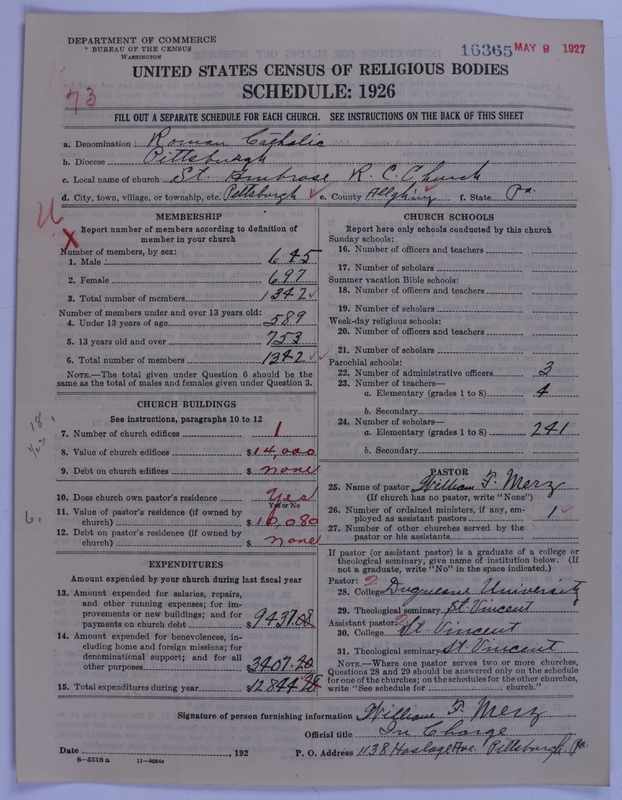 DEPARTMENT OF COMMERCE
BUREAU OF THE CENSUS
WASHINGTON
16365 MAY 9 1927
UNITED STATES CENSUS OF RELIGIOUS BODIES
SCHEDULE: 1926
73
FILL OUT A SEPARATE SCHEDULE FOR EACH CHURCH. SEE INSTRUCTIONS ON THE BACK OF THIS SHEET
a. Denomination Roman Catholic
b. Diocese Pittsburgh
c. Local name of church St. Ambrose R. C. Church
d. City, town, village, or township, etc. Pittsburgh e. County Allegheny f. State Pa.
MEMBERSHIP
Report number of members according to definition of
member in your church
Number of members, by sex:
1. Male 645
2. Female 697
3. Total number of members 1342
Number of members under and over 13 years old:
4. Under 13 years of age 589
5. 13 years old and over 753
6. Total number of members 1342
NOTE.—The total given under Question 6 should be the
same as the total of males and females given under Question 3.
CHURCH BUILDINGS
See instructions, paragraphs 10 to 12
7. Number of church edifices 1
8. Value of church edifices $14,000
9. Debt on church edifices $ none
10. Does church own pastor's residence Yes
Yes or No
11. Value of pastor's residence (if owned by
church) $10,080
12. Debt on pastor's residence (if owned by
church) $ none
EXPENDITURES
Amount expended by your church during last fiscal year
13. Amount expended for salaries, repairs,
and other running expenses; for im-
provements or new buildings; and for
payments on church debt $9437.08
14. Amount expended for benevolences, in-
cluding home and foreign missions; for
denominational support; and for all
other purposes $3407.20
15. Total expenditures during year $12844.28
CHURCH SCHOOLS
Report here only schools conducted by this church
Sunday schools:
16. Number of officers and teachers
17. Number of scholars
Summer vacation Bible schools:
18. Number of officers and teachers
19. Number of scholars
Week-day religious schools:
20. Number of officers and teachers
21. Number of scholars
Parochial schools:
22. Number of administrative officers 3
23. Number of teachers—
a. Elementary (grades 1 to 8) 4
b. Secondary
24. Number of scholars—
a. Elementary (grades 1 to 8) 241
b. Secondary
PASTOR
25. Name of pastor William F. Merz
(If church has no pastor, write "None")
26. Number of ordained ministers, if any, em-
ployed as assistant pastors 1
27. Number of other churches served by the
pastor or his assistants
If pastor (or assistant pastor) is a graduate of a college or
theological seminary, give name of institution below. (If
not a graduate, write "No" in the space indicated.)
Pastor: 2
28. College Duquesne University
29. Theological seminary St. Vincent
Assistant pastor: 2
30. College St. Vincent
31. Theological seminary St. Vincent
NOTE.—Where one pastor serves two or more churches,
Questions 28 and 29 should be answered only on the schedule
for one of the churches; on the schedules for the other churches,
write "See schedule for church."
Signature of person furnishing information William F. Merz
Official title In Charge
Date , 192 P. O. Address 1138 Haslage Ave. Pittsburgh, Pa.
8—5518a 11—9084